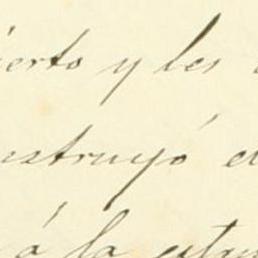 ierto y les
nstruyó e
á la estru